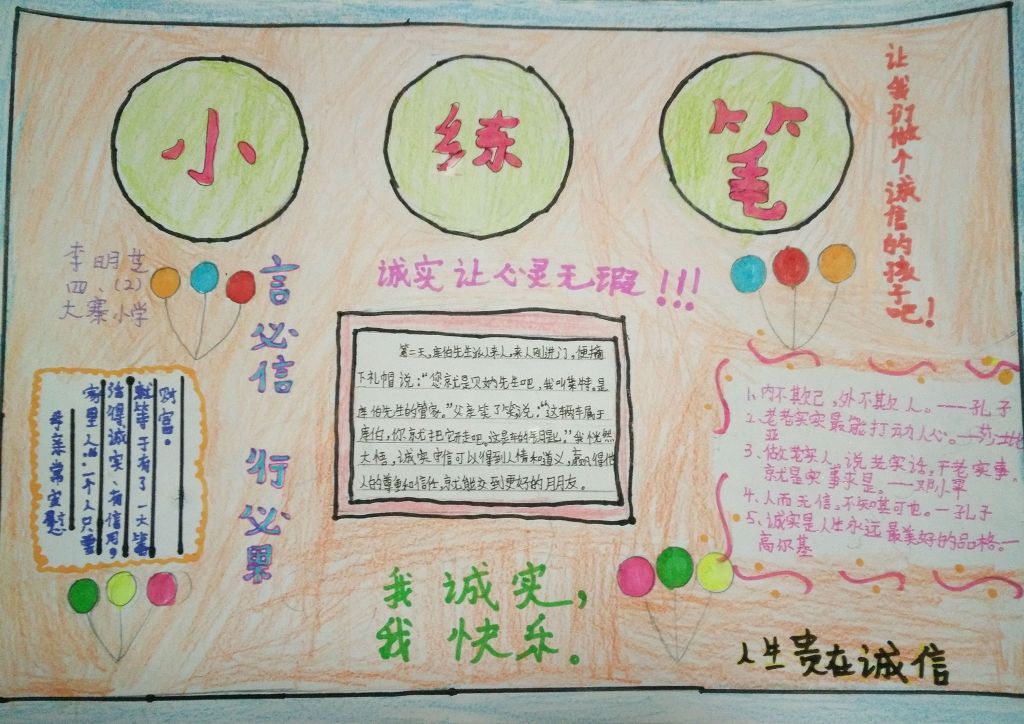 小练笔
让我们做个诚信的孩子吧！
李明芝
四、（2）
大寨小学
言必信 行必果
诚实让心灵无瑕！！！
母亲常安慰
家里人说：一个人只要
活得诚实、有信用，
就等于有了一大笔
财富。
第二天，库伯先生派人来人，来人刚进门，便摘
下礼帽说：“您就是贝奶先生吧，我叫莱特。是
库伯先生的管家。”父亲笑了笑说：“这辆车属于
库伯，你就把它开走吧。这是车的
大悟，诚实守信可以得到人情和道义，赢得他
人的尊重和信任，就能交到更好的月朋友。
1、内不欺己，外不欺人。——孔子
2、老老实实最能打动人心。——莎士比
亚
3、做老实人，说老实话，干老实事。
就是实事求是。——邓小平
4、人而无信，不知其可也。—孔子
5、诚实是人生永远最美好的品格。—
高尔基
我诚实，
我快乐。
人生贵在诚信